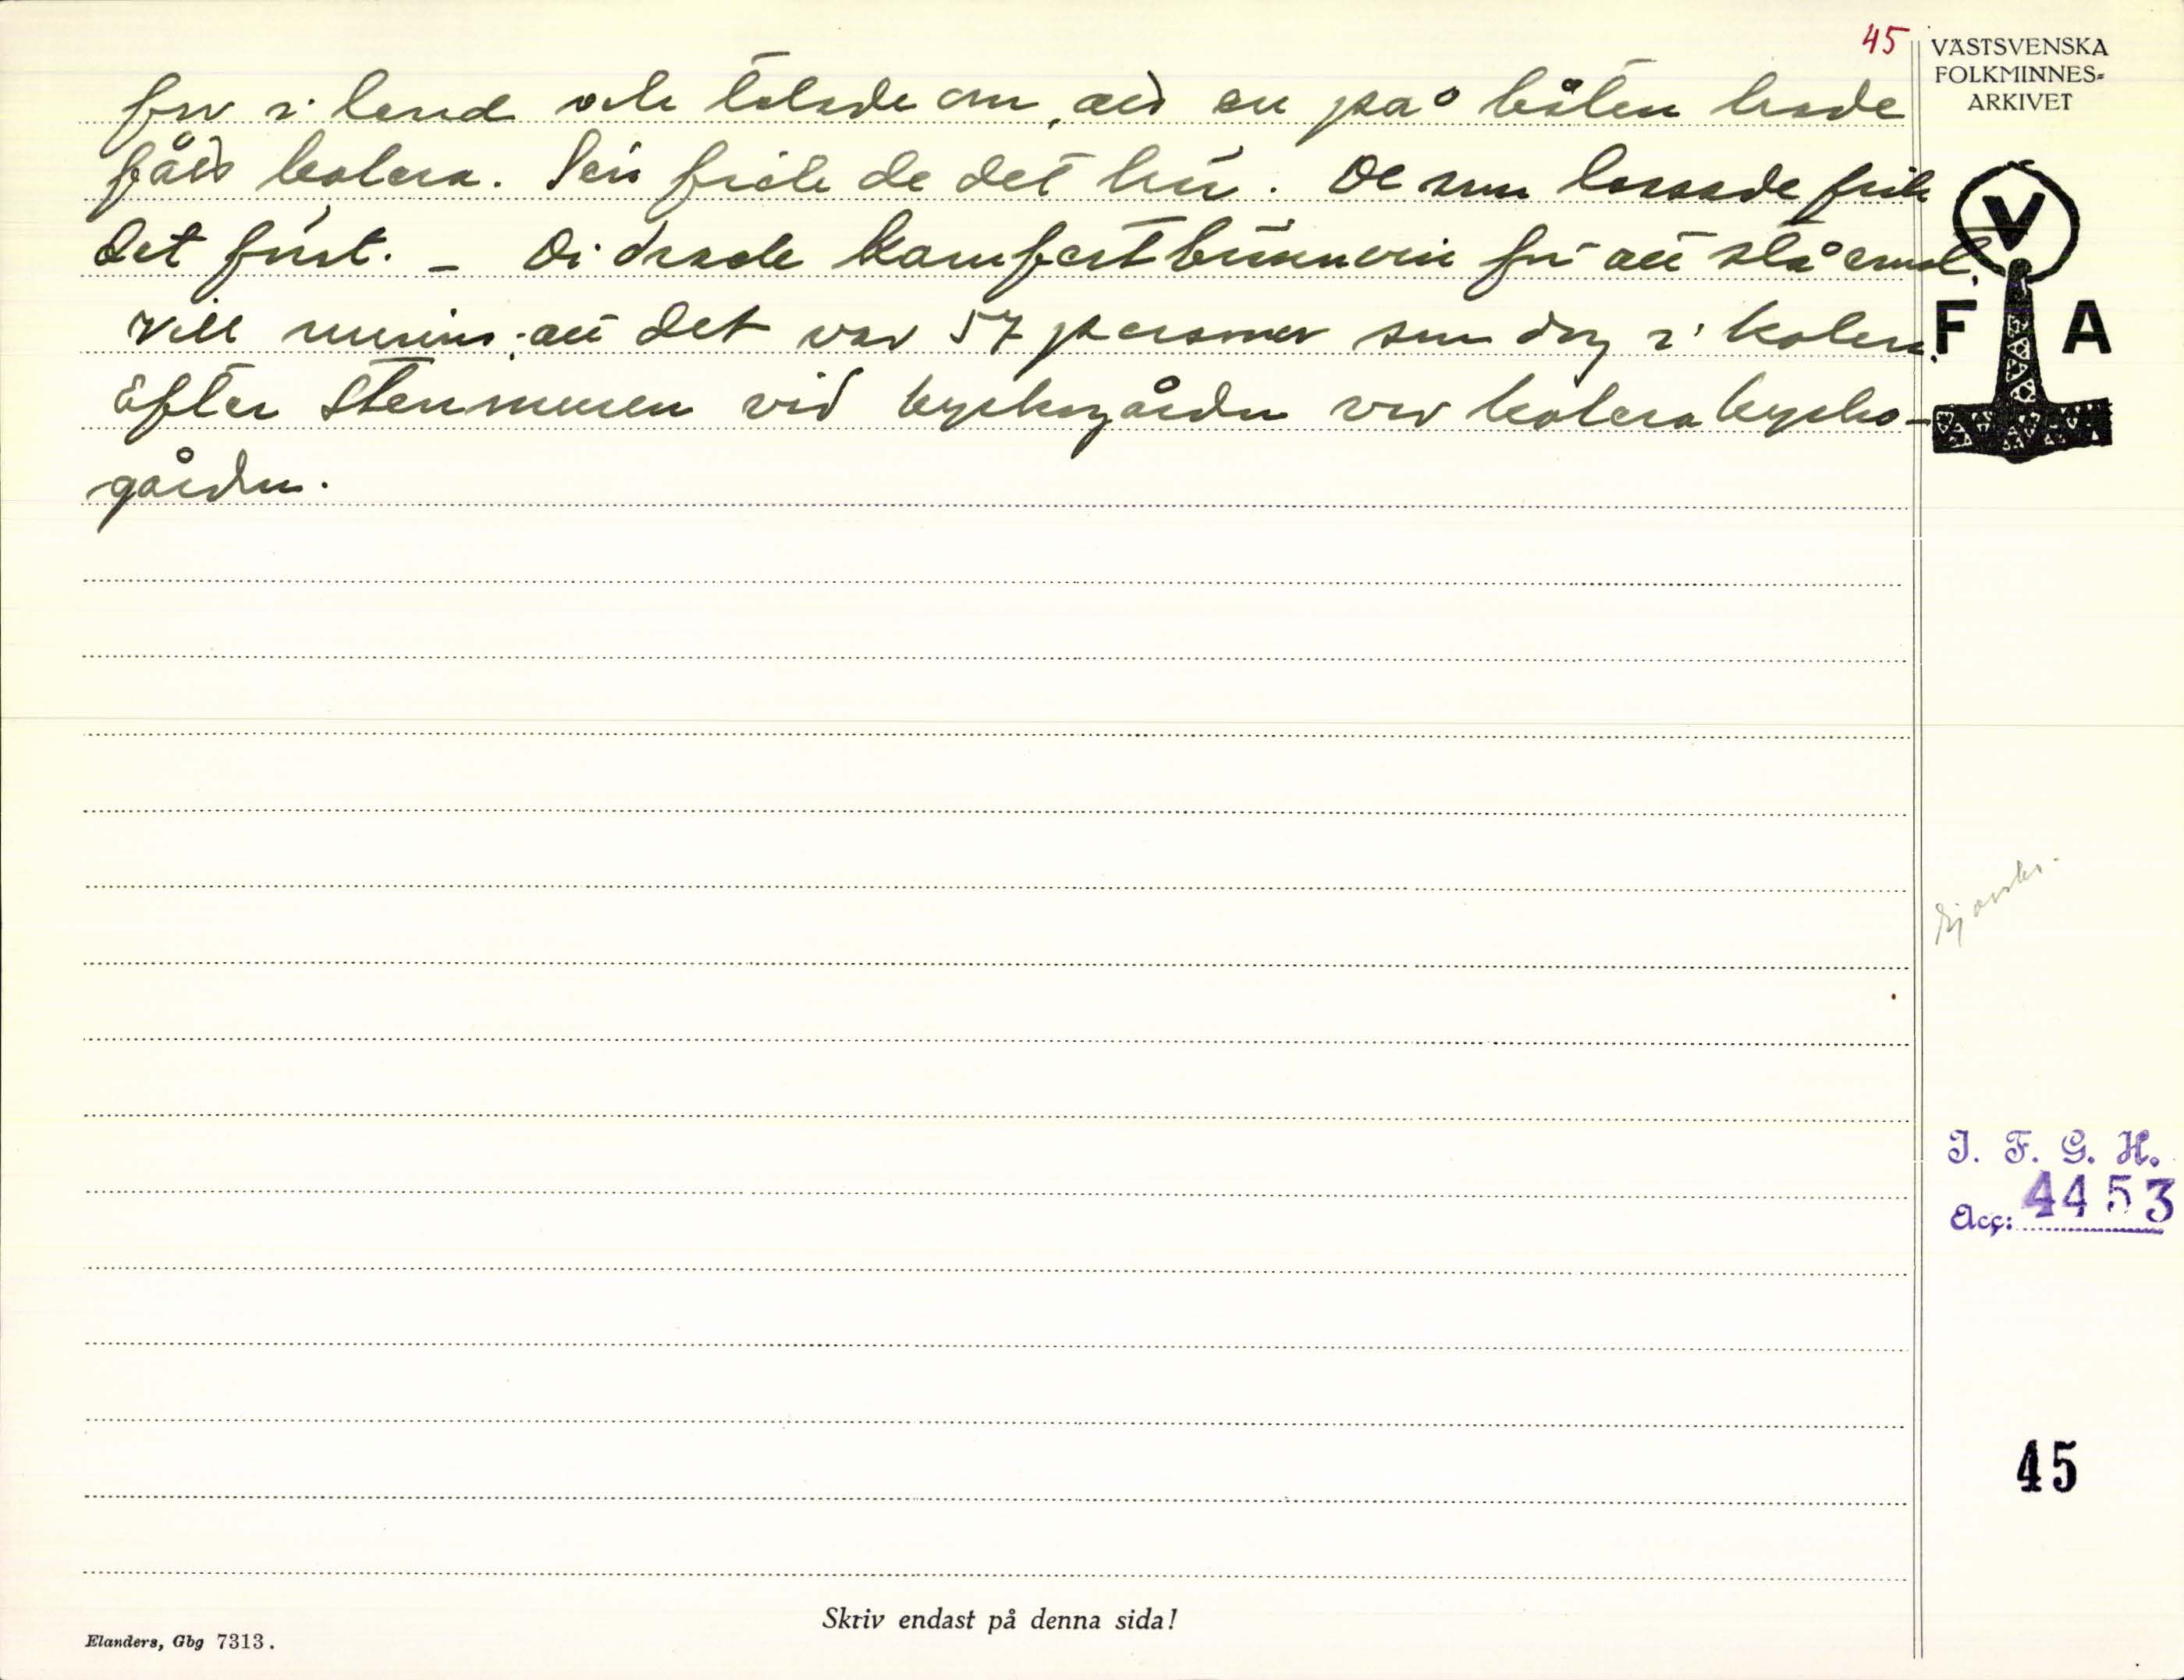 45
VÄSTSVENSKA
FOLKMINNES-
ARKIVET
for i land och talade om, att en på båten hade
fått kolera. Sen fick de det här. De som lossade fick
det först. – Di drack kamfertbrännvin för att stå emot.
Vill minnas att det var 57 personer som dog i kolera.
Efter stenmuren vid kyrkogården var kolerakyrko-
gården.
V
F A
Ej avskr.
I. F. G. H.
Acc: 4453
45
Skriv endast på denna sida!
Elanders, Gbg 7313.